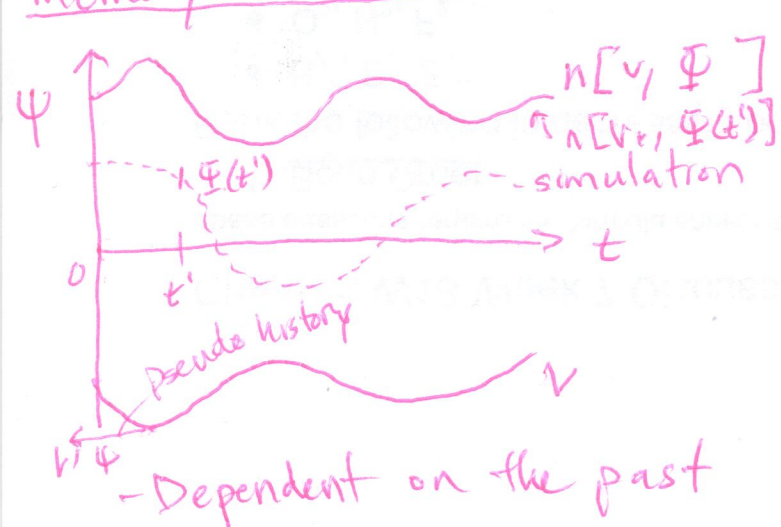 Ψ
n[v, Φ]
n[vt, Φ(t')]
Φ(t')
simulation
0
t'
t
pseudo history
V
Ψ
-Dependent on the past